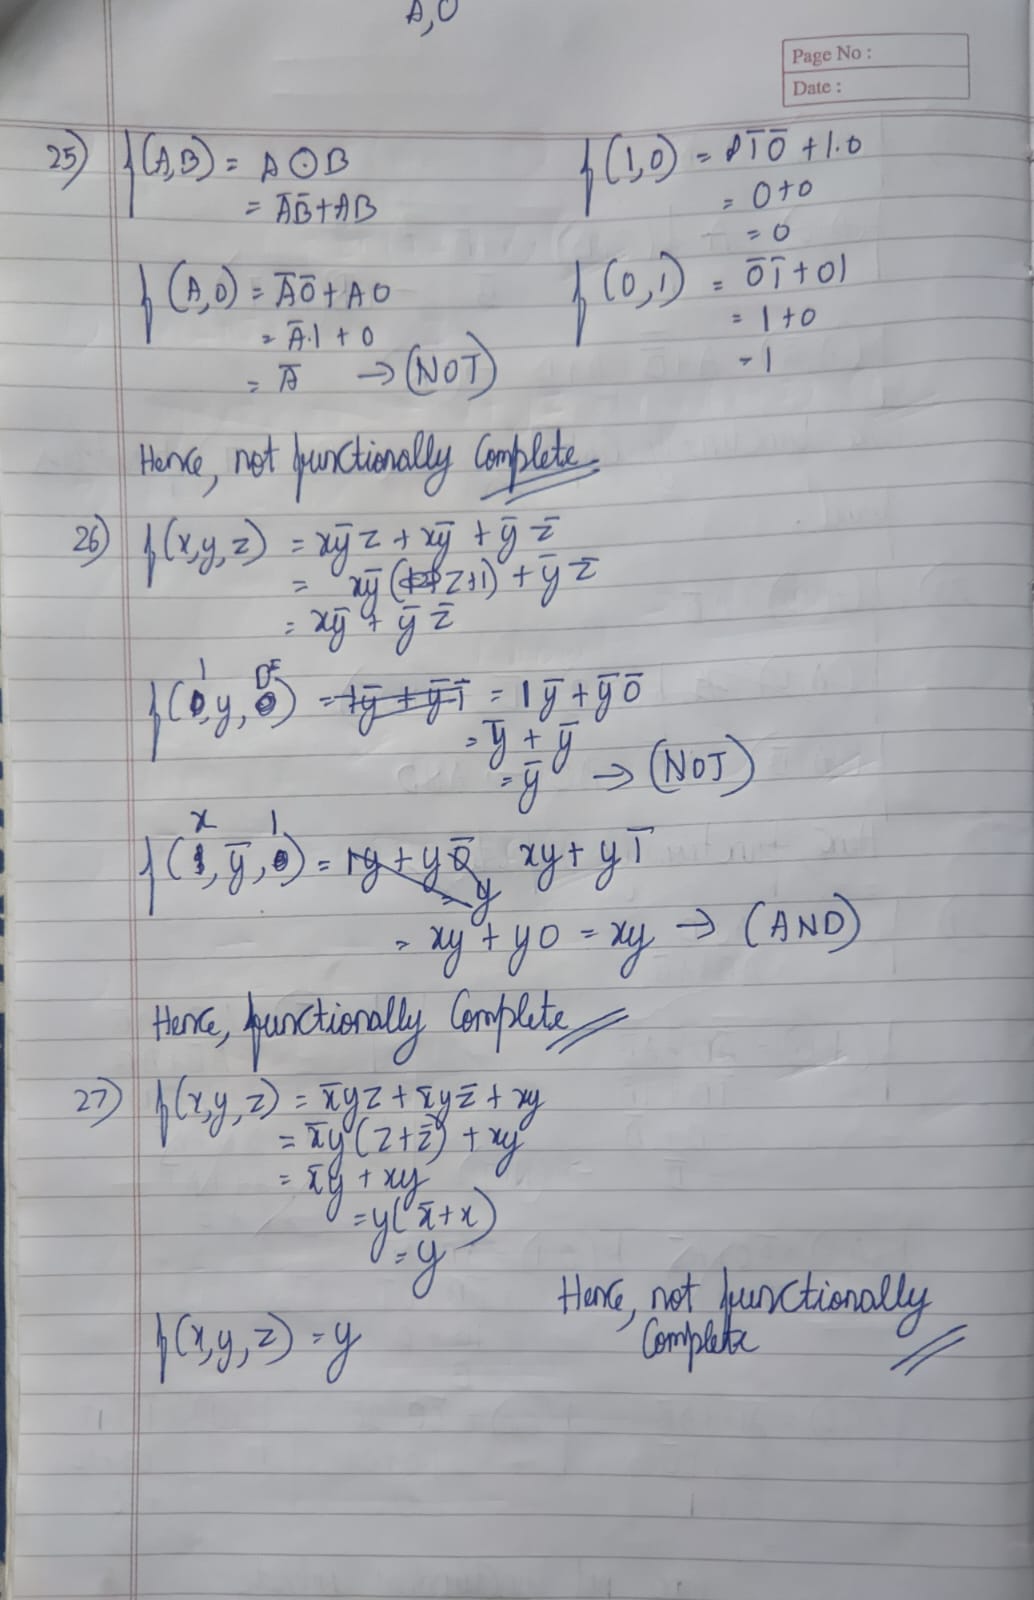 A,0
Page No :
Date :
25) f(A,B) = A ⊙ B
= A̅B̅ + AB
f(A,0) = A̅0̅ + A0
= A̅.1 + 0
= A̅ → (NOT)
f(1,0) = 1̅0̅ + 1.0
= 0+0
= 0
f(0,1) = 0̅1̅ + 01
= 1+0
= 1
Hence, not functionally Complete
26) f(x,y,z) = xy̅z + xy̅ + y̅z̅
= xy̅(z+1) + y̅z̅
= xy̅ + y̅z̅
f(1,y,0) = 1y̅ + y̅1̅ = 1y̅ + y̅0̅
= y̅ + y̅
= y̅ → (NOT)
f(x,y̅,1) = 1y + y0̅ xy + y1̅
= y
= xy + y0 = xy → (AND)
Hence, functionally Complete
27) f(x,y,z) = x̅yz + x̅yz̅ + xy
= x̅y(z+z̅) + xy
= x̅y + xy
= y(x̅+x)
= y
f(x,y,z) = y
Hence, not functionally
Complete